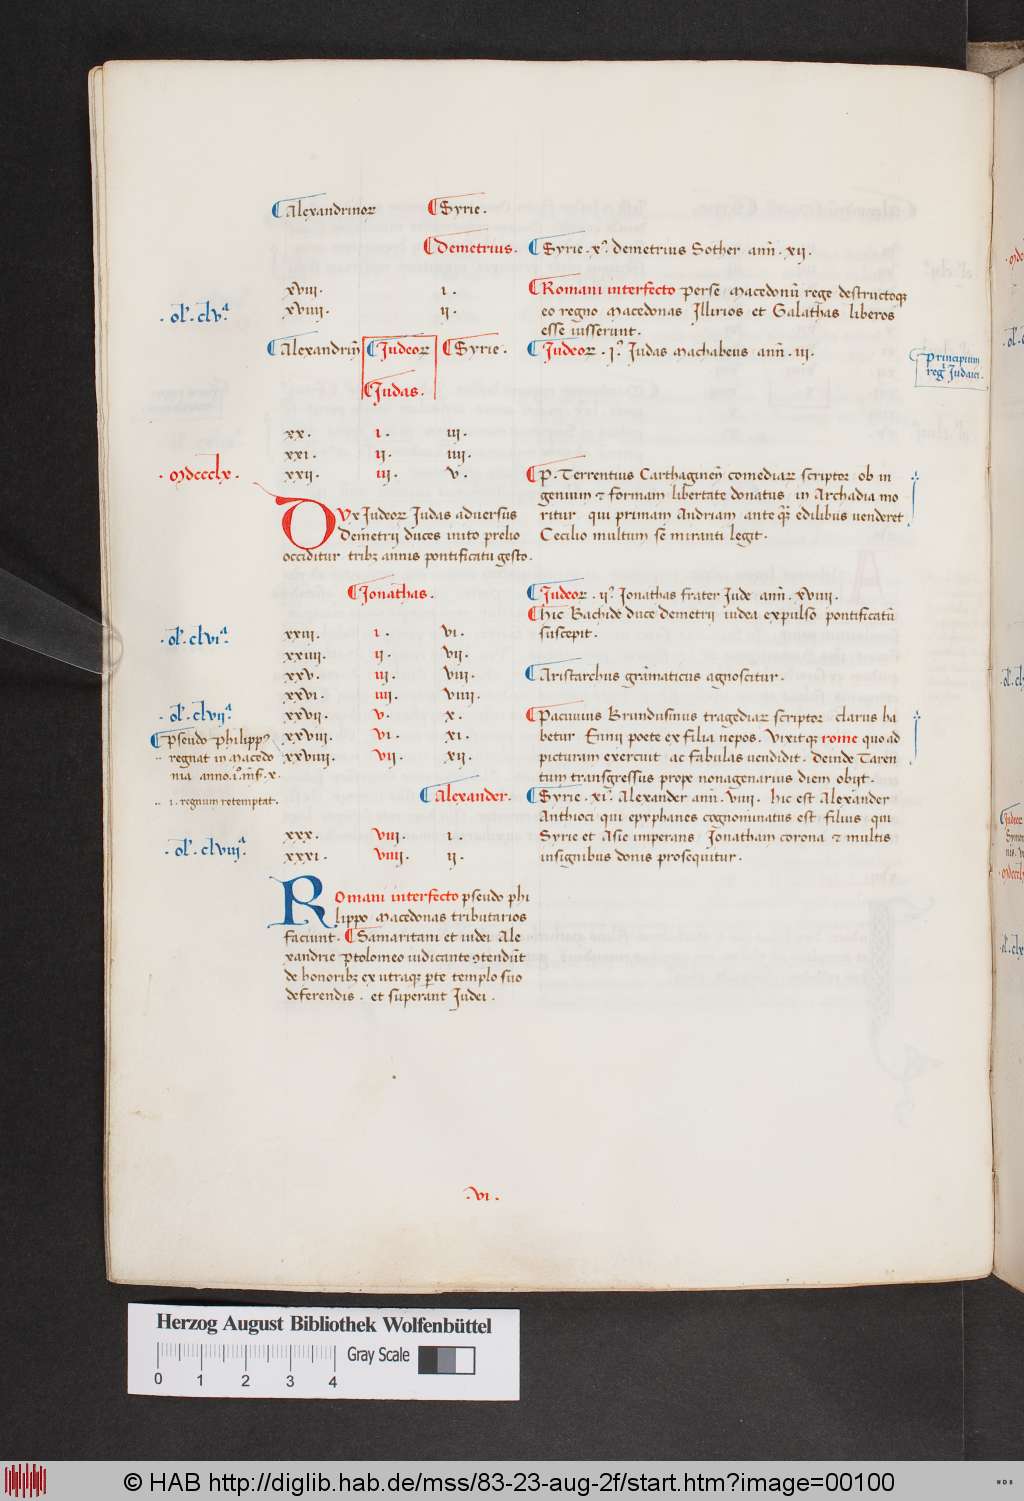 Alexandrinoꝝ Syrie.
Demetrius. Syrie. x.º demetrius Sother. anñ. xii.
xviii. i. Romani interfecto perse macedonũ rege destructoqꝫ
ol'. clv.ª xviiii. ii. eo regno macedonas Illirios et Galathas liberos
esse iusserunt.
Alexandriñ Judeoꝝ Syrie. Judeoꝝ. i.º Judas machabeus anñ. iii. principium
reg̃ Judaici.
Judas.
xx. i. iii.
xxi. ii. iiii.
mdccclx. xxii. iii. v. P. Terrentius Carthagineñ comediaꝝ scriptor ob in
genium ⁊ formam libertate donatus in Archadia mo
DVx Judeoꝝ Judas adversus ritur qui primam Andriam ante q̃ edilibus venderet
Demetrii duces inito prelio Cecilio multum se miranti legit.
occiditur tribꝫ annis pontificatu gesto.
Jonathas. Judeoꝝ. ii.º Jonathas frater Jude anñ. xviiii.
Hic Bachide duce demetrii iudea expulso pontificatũ
ol'. clvi.ª xxiii. i. vi. suscepit.
xxiiii. ii. vii.
xxv. iii. viii. Aristarchus grãmaticus agnoscitur.
xxvi. iiii. viiii.
ol'. clvii.ª xxvii. v. x. Pacuvius Brundusinus tragediaꝝ scriptor clarus ha
pseudo philipp9 xxviii. vi. xi. betur Ennii poete ex filia nepos. Vixitqꝫ rome quoad
regnat in macedo xxviiii. vii. xii. picturam exercuit ac fabulas vendidit. deinde Taren
nia anno. i.º mẽs̃. x. tum transgressus prope nonagenarius diem obijt.
i. regnum retemptat. Alexander. Syrie. xi.º Alexander anñ. viiii. hic est Alexander
Anthioci qui epyphanes cognominatus est filius qui
xxx. viii. i. Syrie et Asie imperans Jonatham corona ⁊ multis
ol'. clviii.ª xxxi. viiii. ii. insignibus donis prosequitur.
ROmani interfecto pseudo phi
lippo macedonas tributarios
faciunt. Samaritani et iudei Ale
xandrie ptolomeo iudicante ꝯtendũt
de honoribꝫ ex utraqꝫ ꝑte templo suo
deferendis. et superant Judei.
.vi.
Herzog August Bibliothek Wolfenbüttel
Gray Scale
0 1 2 3 4
© HAB http://diglib.hab.de/mss/83-23-aug-2f/start.htm?image=00100